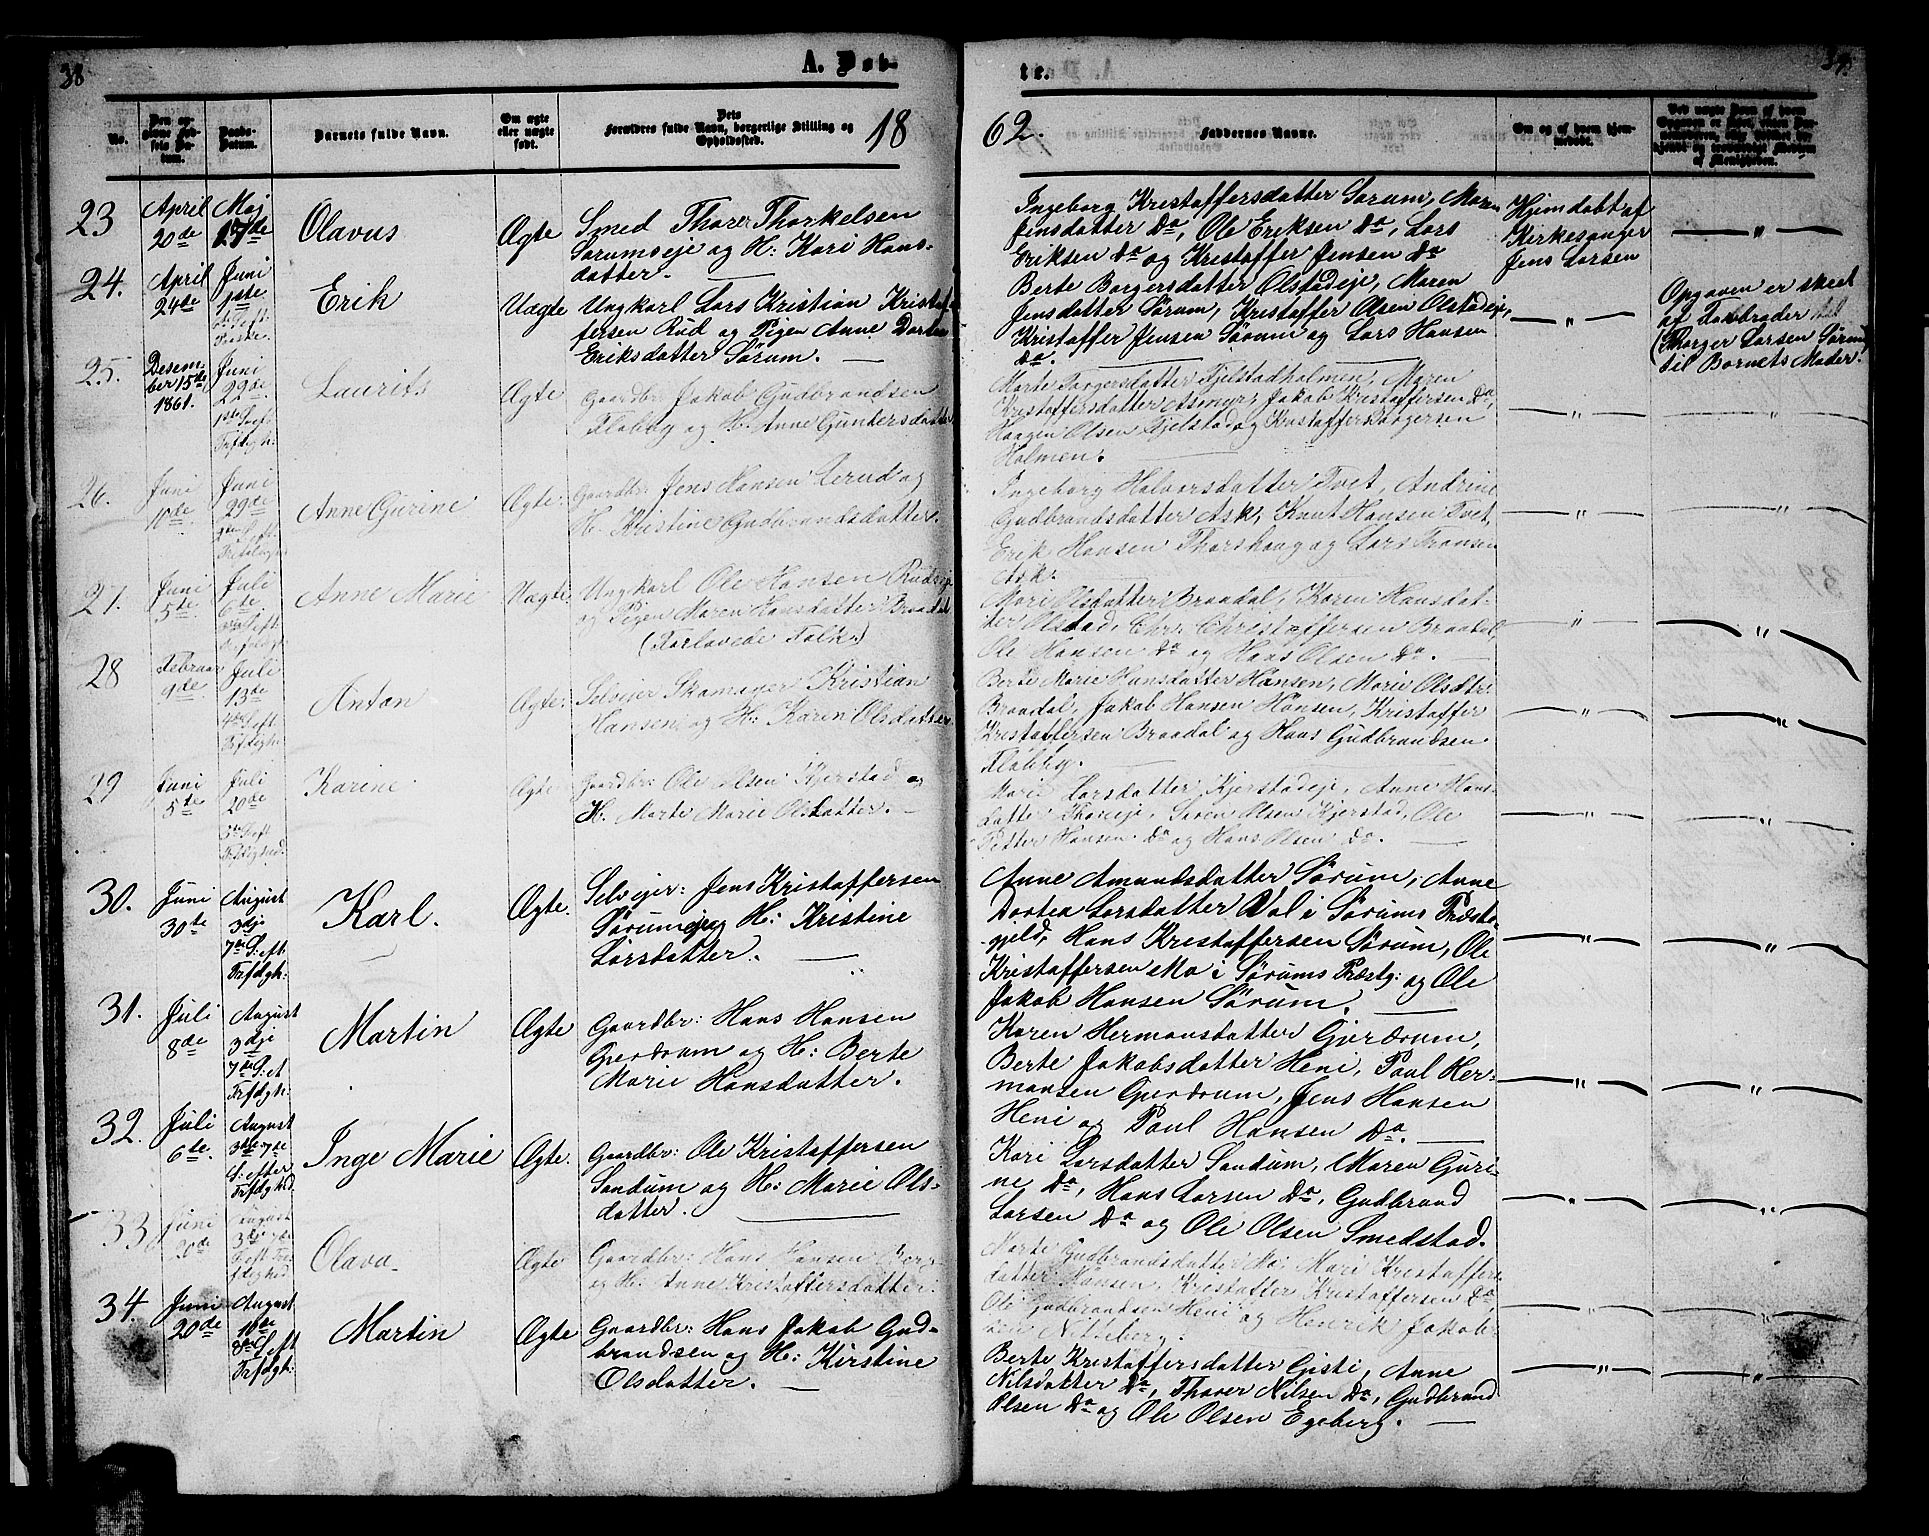 38
A. Døb-
te.
39.
No.
Den op-
givne Fød-
sels Da-
tum.
Daabs-
Datum.
Barnets fulde Navn.
Om ægte
eller uægte
født.
Dets
Forældres fulde Navn, borgerlige Stilling og
Opholdssted.
18
62.
Faddernes Navne.
Om og af hvem hjem-
medøbt.
23
April
20de
Maj
17de
Olavus
Ægte
Smed Thorer Thorkelsen
Sørumseje og H: Kari Hans-
datter.
Ingeborg Kristoffersdatter Sørum, Maren
Jensdatter Do, Ole Eriksen Do, Lars
Eriksen Do og Kristoffer Jensen Do
Hjemdøbt af
Kirkesanger
Jens Larsen
"
24.
April
24de
Juni
1ste
Erik
Uægte
Ungkarl Lars Kristian Kristof-
fersen Rud og Pigen Anne Dortea
Eriksdatter Sørum.
Berte Borgersdatter Olstadeje, Maren
Jensdatter Sørum, Kristoffer Olsen Olstadeje,
Kristoffer Jensen Sørum og Lars Hansen
Do.
"
Opgaven er skeet
af
Larsen Sørum
til Barnets Moder.
25.
Desem-
ber 15de
1861.
Juni
29de
Laurits
Ægte
Gaardbr: Jakob Gudbrandsen
Flabby og H: Anne Guntersdatter
Marte Torgersdatter Fjelstadholmen, Maren
Kristoffersdatter Asmyr, Jakob Kristoffersen Do,
Haagen Olsen Fjelstad og Kristoffer Torgersen
Holmen.
"
"
26.
Juni
10de
Juni
29de
Anne Gurine
Ægte.
Gaardbr: Jens Hansen Lerud og
H: Kristine Gudbrandsdatter.
Ingeborg Halvorsdatter Tvet, Andrine
Gudbrandsdatter Ask, Knut Hansen Tvet,
Erik Hansen Thorshaug og Lars Fransen
Ask.
"
"
27.
Juni
5te
Juli
6te
Anne Marie
Uægte.
Ungkarl Ole Hansen Rudseje
og Pigen Maren Hansdatter Braadal
(Forlovede Folk.)
Mari Olsdatter Braadal, Karen Hansdat-
ter Olstad, Chr: Christoffersen Braadal,
Ole Hansen Do og Hans Olsen Do.
"
"
28
Februar
9de
Juli
13de
Anton
Ægte.
Selvejer Skomager Kristian
Hansen og H: Karen Olsdatter
Berte Marie Hansdatter Hønsen, Marie Olsdtr:
Braadal, Jakob Hansen Hønsen, Kristoffer
Kristoffersen Braadal og Hans Gudbrandsen
Flabby.
"
"
29
Juni
5te
Juli
20de
Karine
Ægte
Gaardbr: Ole Olsen Kjerstad og
H: Marte Marie Olsdatter.
Marie Larsdatter Kjerstadeje, Anne Hans-
datter, Søren Olsen Kjerstad, Ole
Petter Hansen Do og Hans Olsen Do.
"
"
30.
Juni
30te
August
3dje
7de S: eft:
Trfdgh:
Karl.
Ægte.
Selvejer: Jens Kristoffersen
Sørumseje og H: Kristine
Larsdatter.
Anne Amundsdatter Sørum, Anne
Dortea Larsdatter Val i Sørums Præste-
gjeld, Hans Kristoffersen Sørum, Ole
Kristoffersen Mo i Sørums Præstg: og Ole
Jakob Hansen Sørum.
"
"
31.
Juli
8de
August
3dje
7de S: eft
Trfdgh:
Martin
Ægte
Gaardbr: Hans Hansen
Gjerdrum og H: Berte
Marie Hansdatter.
Karen Hermansdatter Gjerdrum,
Berte Jakobsdatter Heni, Paul Her-
mansen Gjerdrum, Jens Hansen
Heni og Paul Hansen Do.
"
"
32.
Juli
6te
August
3die 7de
S: efter
Trfdghed
Inge Marie
Ægte.
Gaardbr: Ole Kristoffersen
Sandum og H: Marie Ols-
datter.
Kari Larsdatter Sandum, Maren Guri-
ne Do, Hans Larsen Do, Gudbrand
Larsen Do og Ole Olsen Smedstad.
"
"
33
Juni
20de
August
3die 7de
Olava
Ægte
Gaardbr: Hans Hansen Berg
og H: Anne Kristoffersdatter.
Marte Gudbrandsdatter Mo, Mari Kristoffers-
datter Hønsen, Kristoffer Kristoffersen Do,
Ole Gudbrandsen Heni og Henrik Jakob-
sen Nitteberg.
"
"
34.
Juni
20de
August
10de
8de S: eft
Trfdgh:
Martin
Ægte
Gaardbr: Hans Jakob Gud-
brandsen og H: Kirstine
Olsdatter.
Berte Kristoffersdatter Gisti, Anne
Nilsdatter Do, Thorer Nilsen Do, Gudbrand
Olsen Do og Ole Olsen Egeberg.
"
"